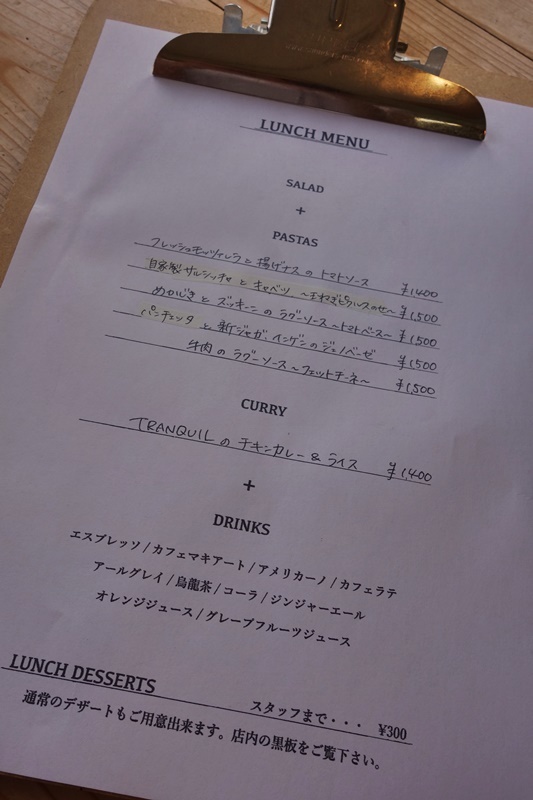 LUNCH MENU
SALAD
+
PASTAS
フレッシュモッツァレラと揚げナスのトマトソース ¥1,400
自家製サルシッチャとキャベツ ~玉ねぎピクルスのせ~ ¥1,500
めかじきとズッキーニのラグーソース~トマトベース~ ¥1,500
パンチェッタと新ジャガ、インゲンのジェノベーゼ ¥1,500
牛肉のラグーソース~フェットチーネ~ ¥1,500
CURRY
TRANQUILのチキンカレー&ライス ¥1,400
+
DRINKS
エスプレッソ/カフェマキアート/アメリカーノ/カフェラテ
アールグレイ/烏龍茶/コーラ/ジンジャーエール
オレンジジュース/グレープフルーツジュース
LUNCH DESSERTS スタッフまで・・・ ¥300
通常のデザートもご用意出来ます。店内の黒板をご覧下さい。